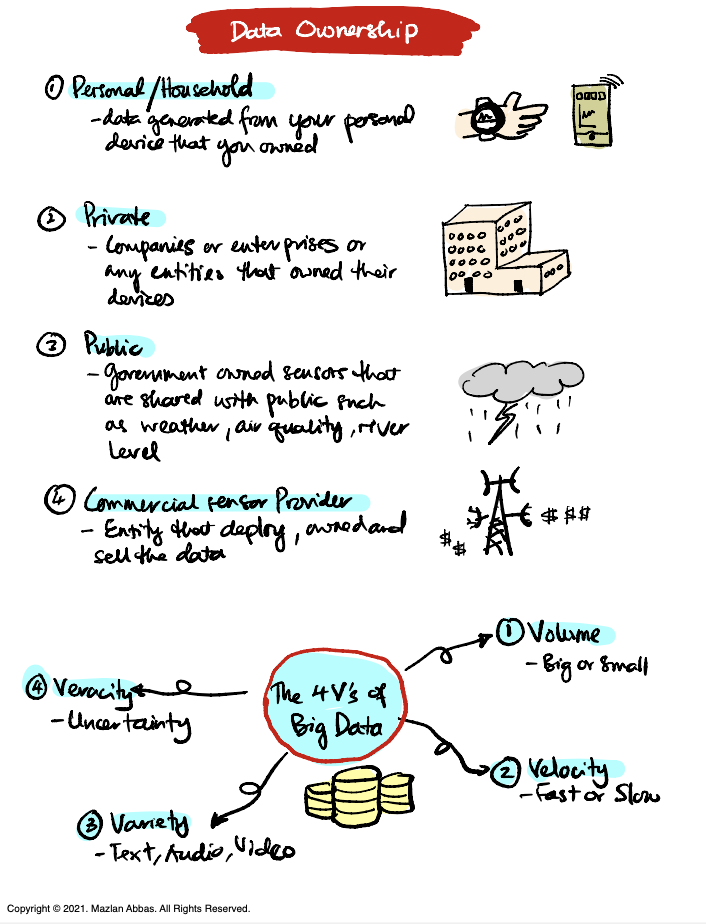 Data Ownership
① Personal/Household
- data generated from your personal
device that you owned
② Private
- Companies or enterprises or
any entities that owned their
devices
③ Public
- Government owned sensors that
are shared with public such
as weather, air quality, river
level
④ Commercial sensor Provider
- Entity that deploy, owned and
sell the data
$ $ $
$
$
The 4 V's of
Big Data
① Volume
- Big or Small
② Velocity
- Fast or Slow
③ Variety
- Text, Audio, Video
④ Veracity
- Uncertainty
Copyright © 2021. Mazlan Abbas. All Rights Reserved.